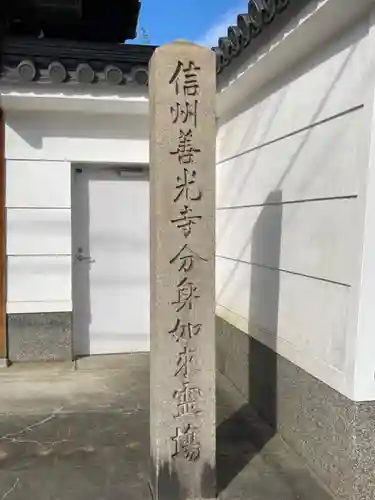 信州善光寺分身如来霊場